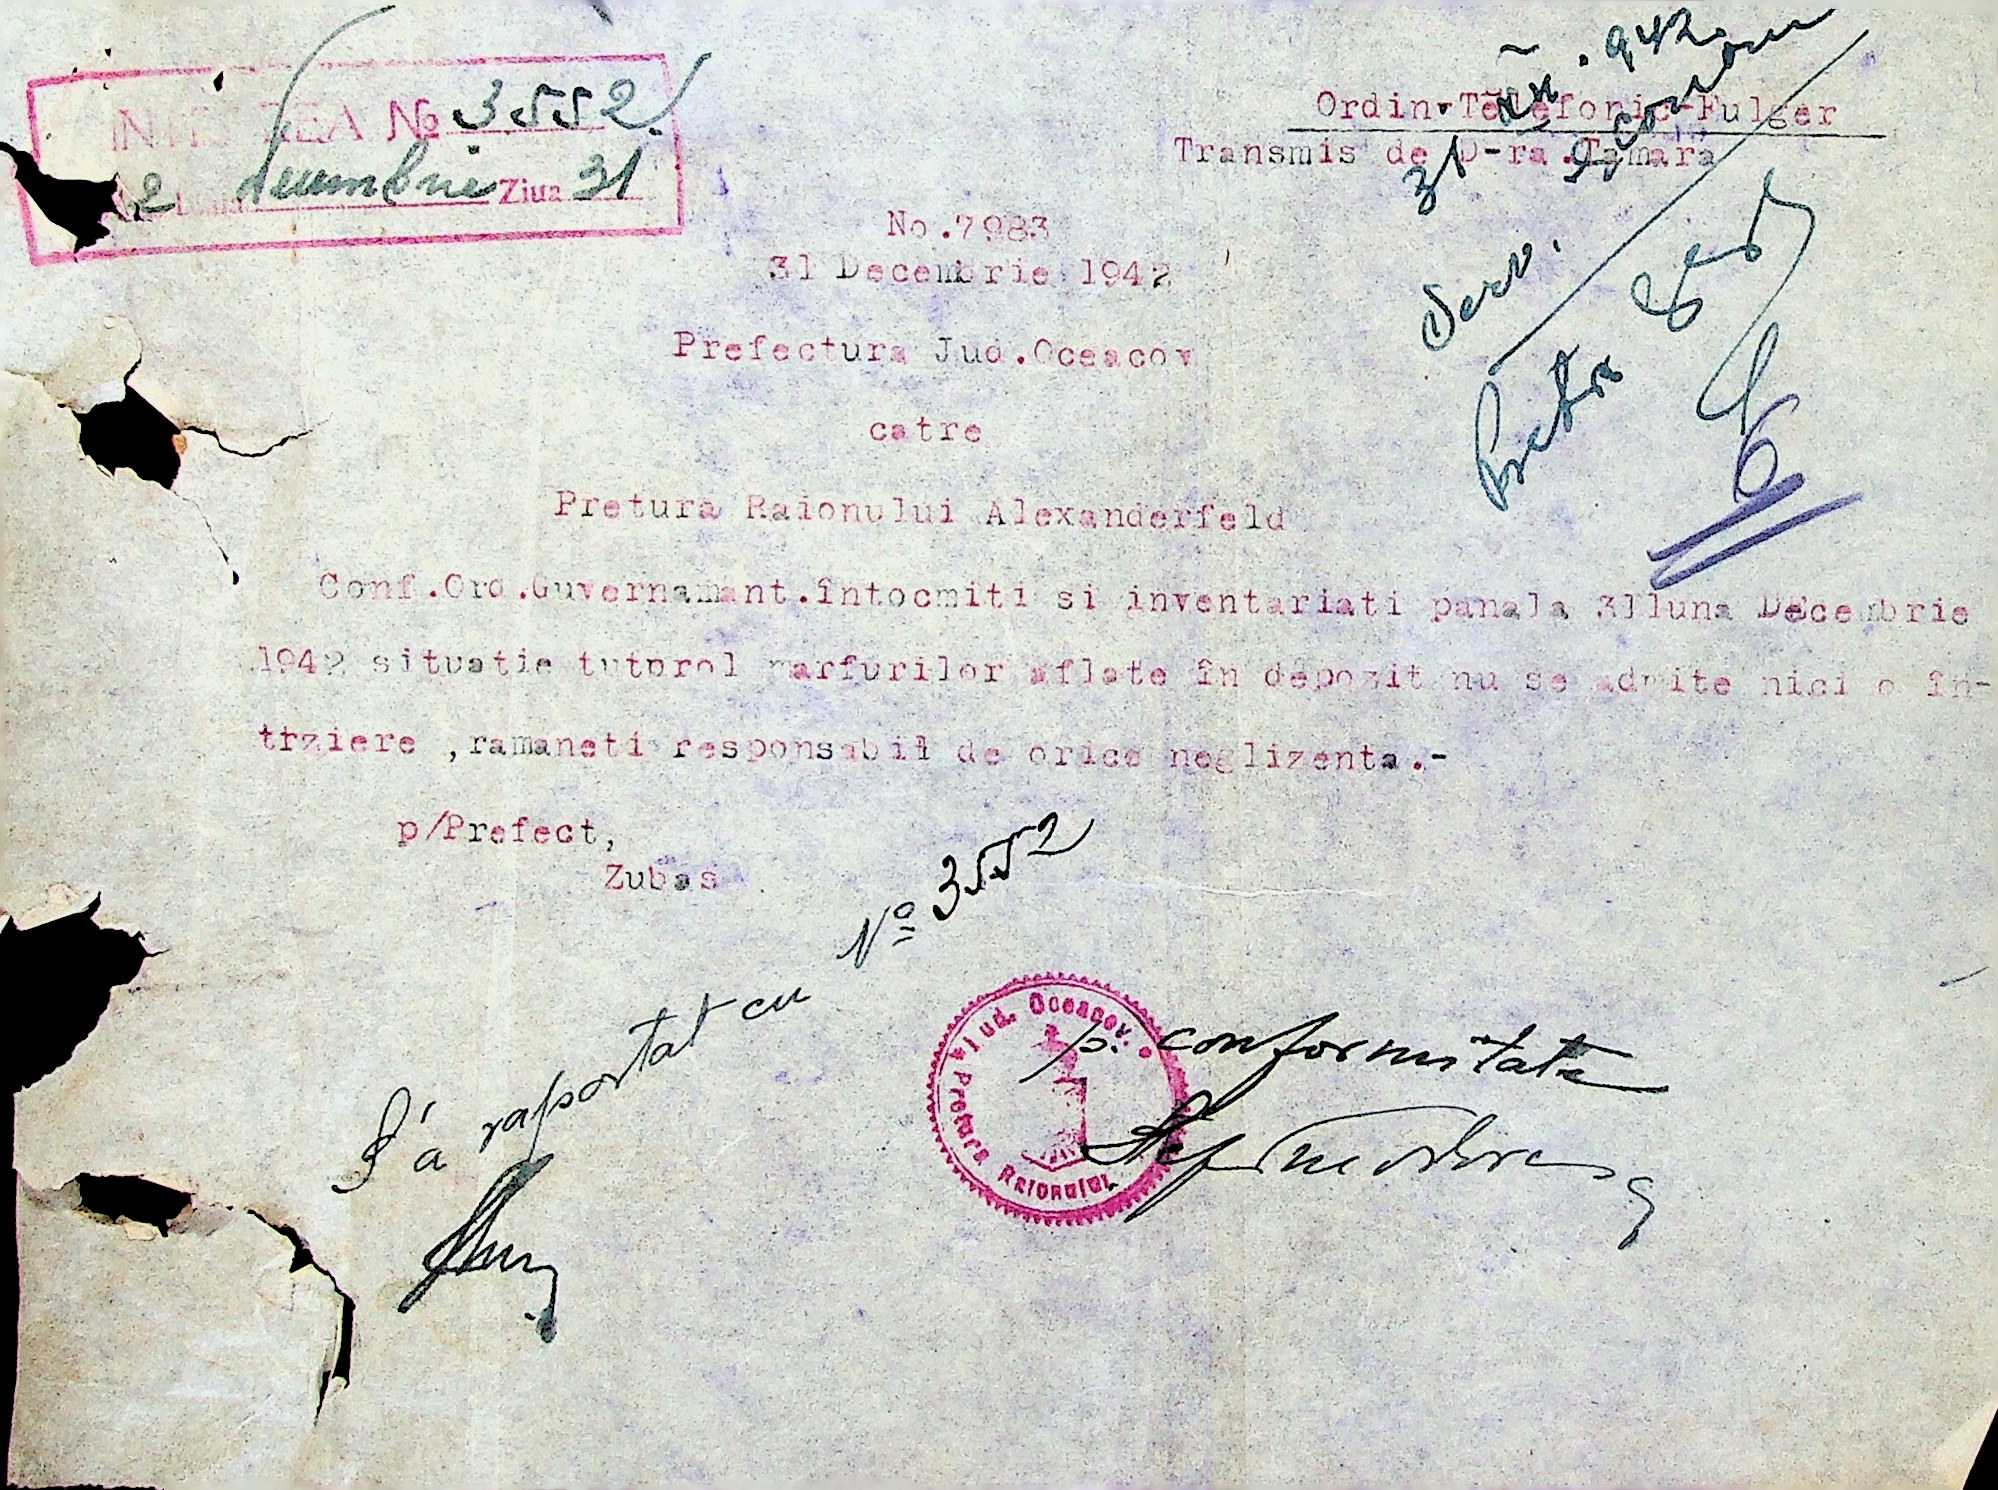 INTRAREA No 3552
2 Luna decembrie Ziua 31
31 XII. 942.
Ordin-Telefonic-Fulger
Transmis de D-ra.Tamara
No.7983
31 Decembrie 1942
Serv.
Prefectura Jud.Oceacov
Pretura
catre
6
Pretura Raionului Alexanderfeld
Conf.Ord.Guvernamant.întocmiti si inventariati panala 31luna Decembrie
1942 situatie tuturol marfurilor aflate în depozit nu se admite nici o în-
trziere ,ramaneti responsabil de orice neglizenta.-
p/Prefect,
Zubas
S'a raportat cu No 3552
Jud. Oceacov
Pretura Raionului
p. conformitate